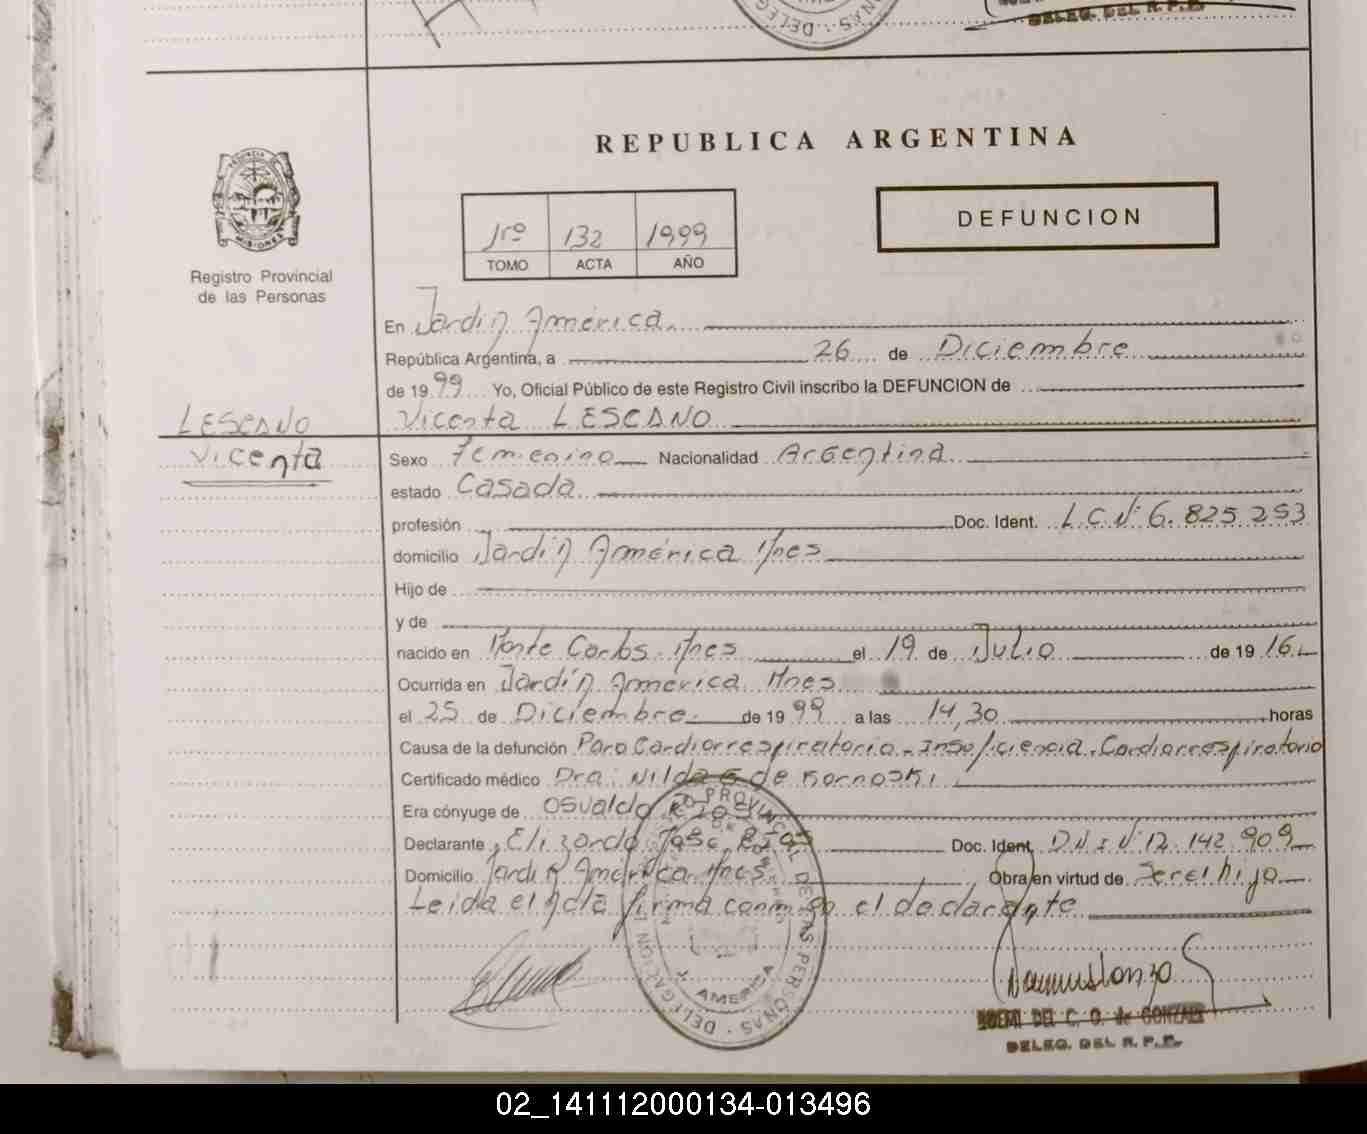 DELEG. DEL R. P. P.
REPUBLICA ARGENTINA
PROVINCIA DE MISIONES
Registro Provincial
de las Personas
1ro 132 1999
TOMO ACTA AÑO
DEFUNCION
En Jardín América.
República Argentina, a 26 de Diciembre
de 1999 Yo, Oficial Público de este Registro Civil inscribo la DEFUNCION de
LESCANO
Vicenta
Vicenta LESCANO
Sexo Femenino Nacionalidad Argentina
estado Casada
profesión Doc. Ident. L.C.Nº 6.825.253
domicilio Jardín América Mnes
Hijo de
y de
nacido en Monte Carlos Mnes el 19 de Julio de 1916
Ocurrida en Jardín América Mnes
el 25 de Diciembre de 1999 a las 14,30 horas
Causa de la defunción Paro Cardiorrespiratorio - Insuficiencia Cardiorrespiratorio
Certificado médico Dra. Nilda G de Kornoski
Era cónyuge de Osvaldo
Declarante Elizardo José Doc. Ident. D.N.I Nº 12.142.909
Domicilio Jardín América Mnes Obra en virtud de Ser el hijo
Leída el acta firma conmigo el declarante
PROVINCIAL DE LAS PERSONAS
AMERICA
NOEMI DEL C. O. de GONZALEZ
DELEG. DEL R. P. P.
02_141112000134-013496